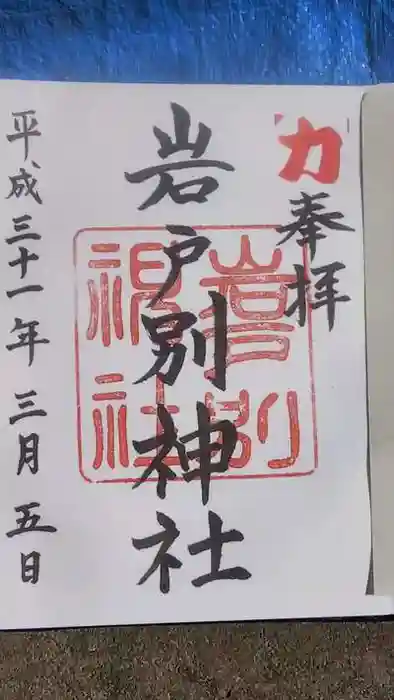 力
奉拝
岩戸別神社
岩戸別神社
平成三十一年三月五日